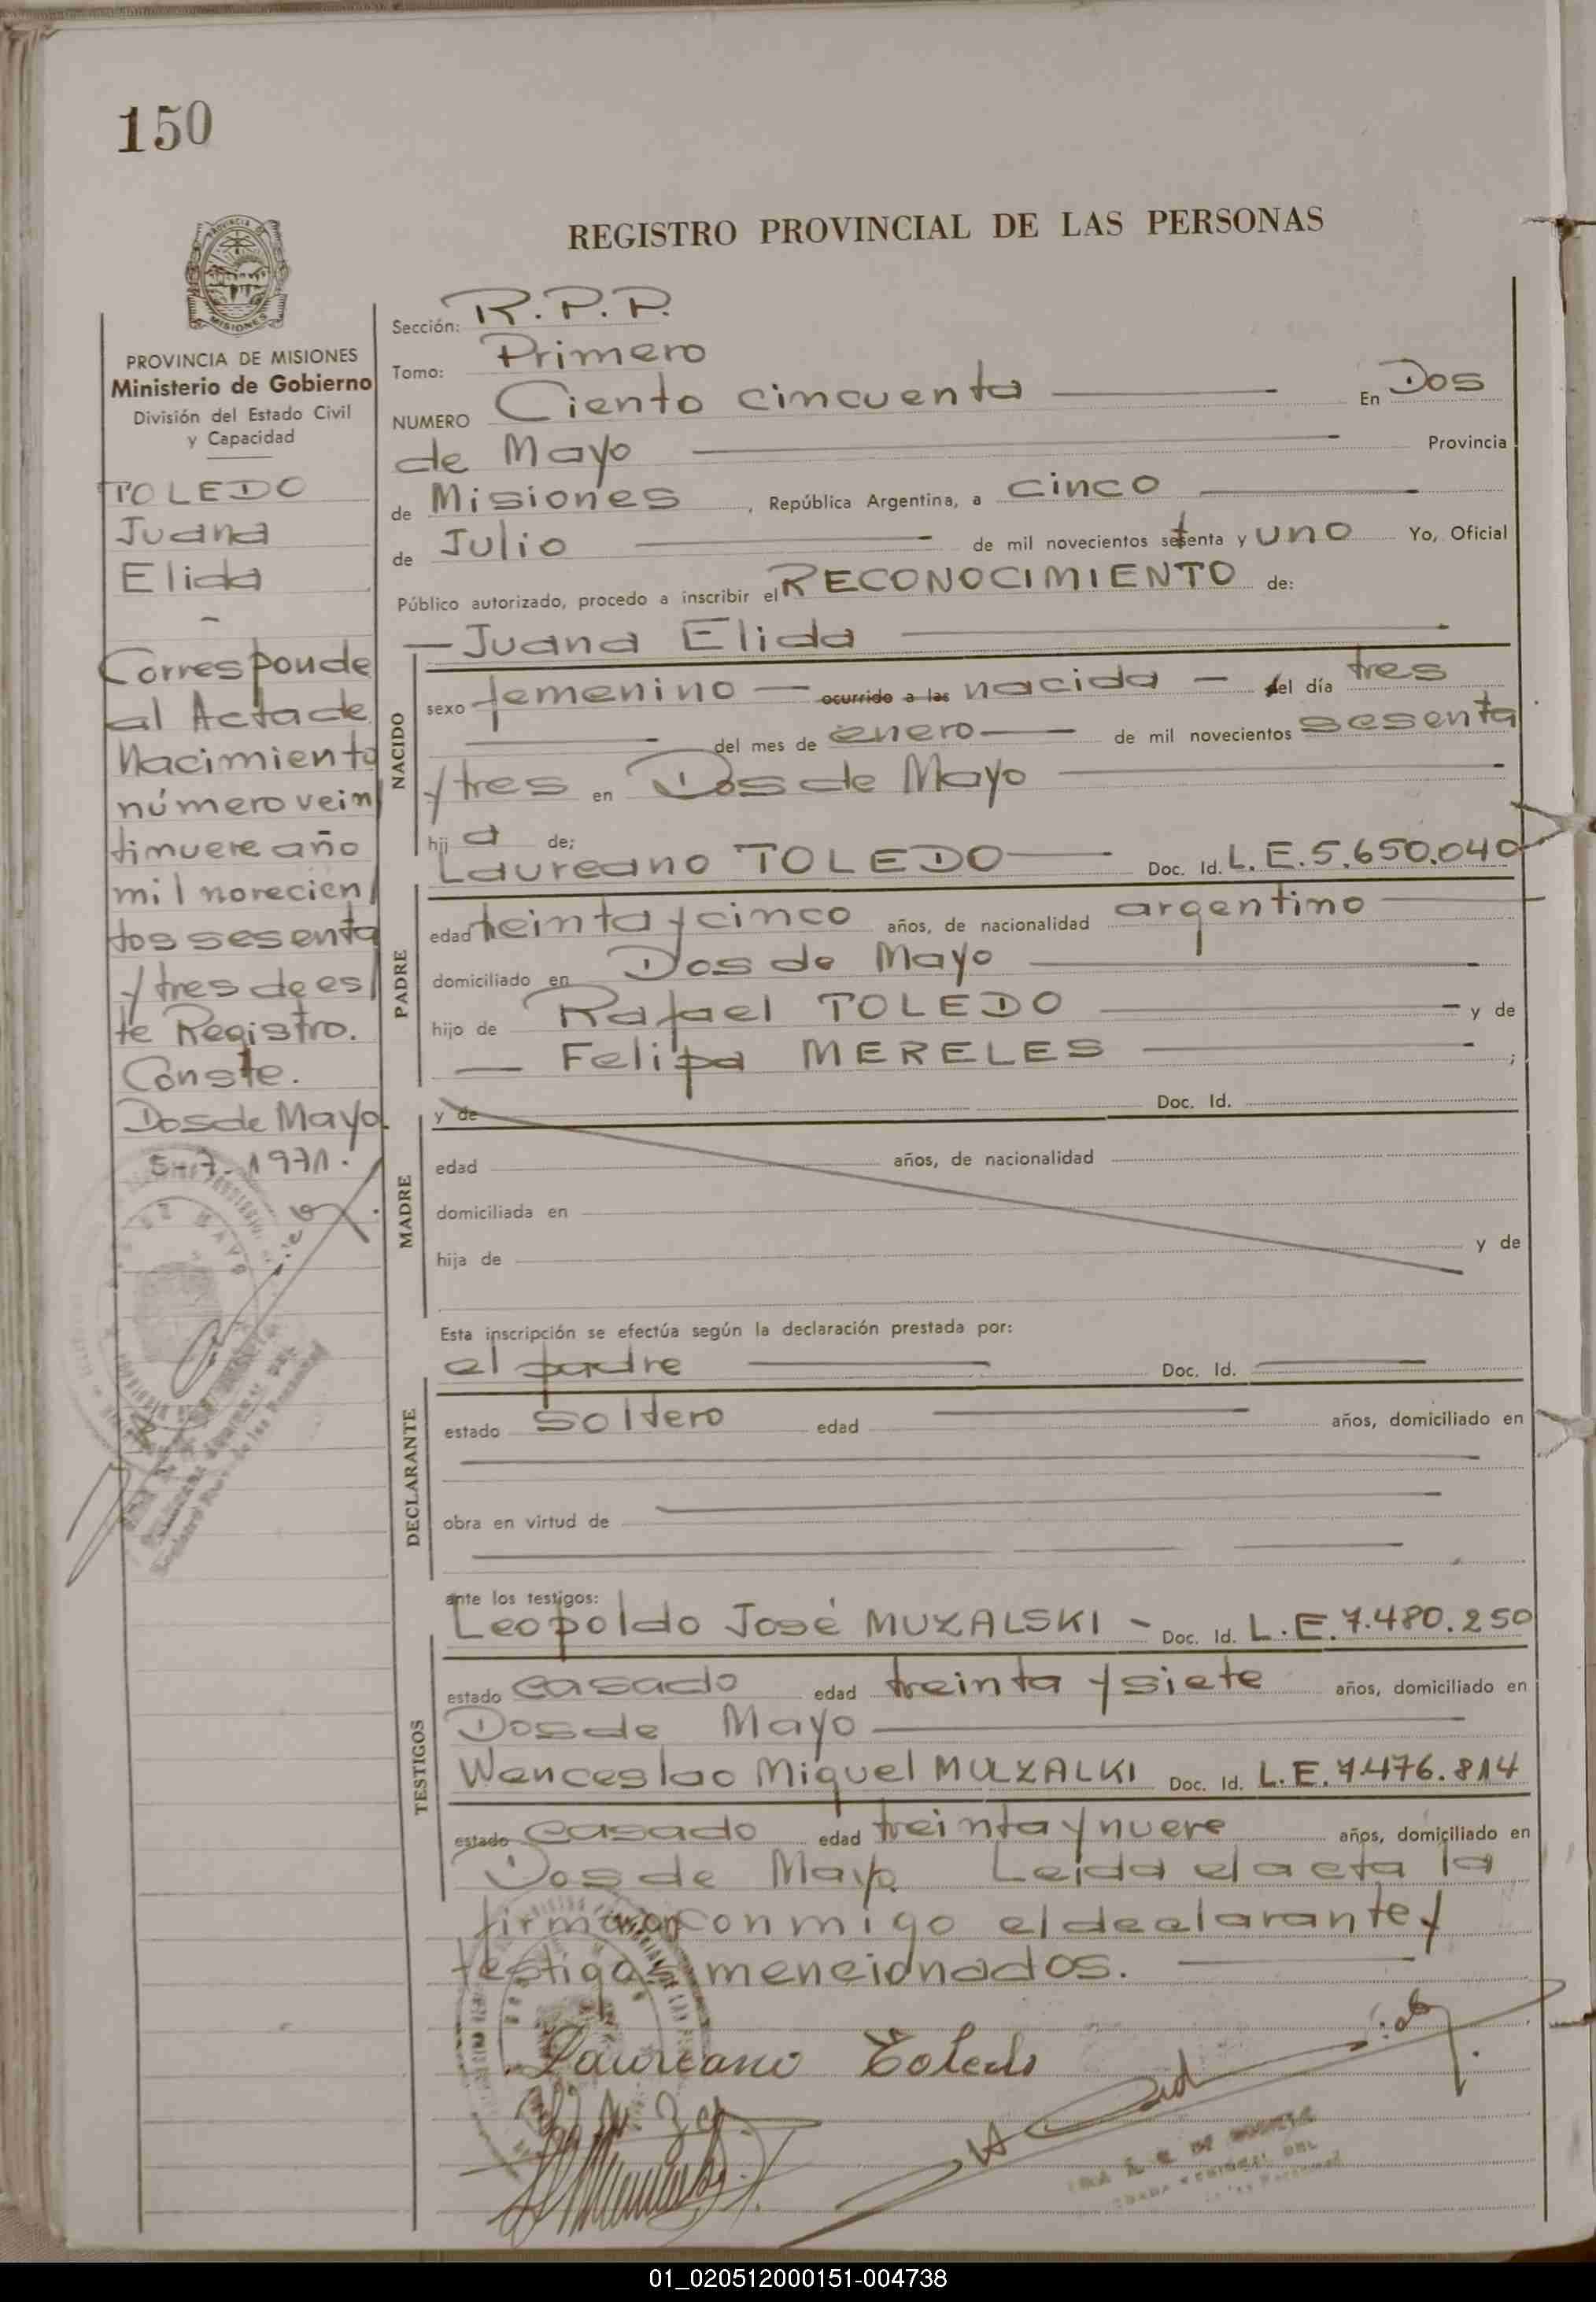 150
REGISTRO PROVINCIAL DE LAS PERSONAS
MISIONES
PROVINCIA DE MISIONES
Ministerio de Gobierno
División del Estado Civil
y Capacidad
TOLEDO
Juana
Elida
-
Corresponde
al Acta de
Nacimiento
número vein
tinueve año
mil novecien
tos sesenta
y tres de es
te Registro.
Conste.
Dos de Mayo
5-7-1971.
Sección: R.P.P.
Tomo: Primero
NUMERO Ciento cincuenta En Dos
de Mayo Provincia
de Misiones, República Argentina, a cinco
de Julio de mil novecientos setenta y uno Yo, Oficial
Público autorizado, procedo a inscribir el RECONOCIMIENTO de:
Juana Elida
NACIDO
sexo femenino ocurrido a las nacida del día tres
del mes de enero de mil novecientos sesenta
y tres en Dos de Mayo
hija de;
Laureano TOLEDO Doc. Id. L.E.5.650.040
PADRE
edad treinta y cinco años, de nacionalidad argentino
domiciliado en Dos de Mayo
hijo de Rafael TOLEDO y de
Felipa MERELES ;
MADRE
y de Doc. Id.
edad años, de nacionalidad
domiciliada en
hija de y de
Esta inscripción se efectúa según la declaración prestada por:
el padre Doc. Id.
DECLARANTE
estado soltero edad años, domiciliado en
obra en virtud de
ante los testigos:
Leopoldo José MUZALSKI - Doc. Id. L.E.7.480.250
TESTIGOS
estado casado edad treinta y siete años, domiciliado en
Dos de Mayo
Wenceslao Miguel MUZALKI Doc. Id. L.E.7.476.814
estado casado edad treinta y nueve años, domiciliado en
Dos de Mayo. Leida el acta la
firman conmigo el declarante y
testigos mencionados.
Laureano Toledo
01_020512000151-004738